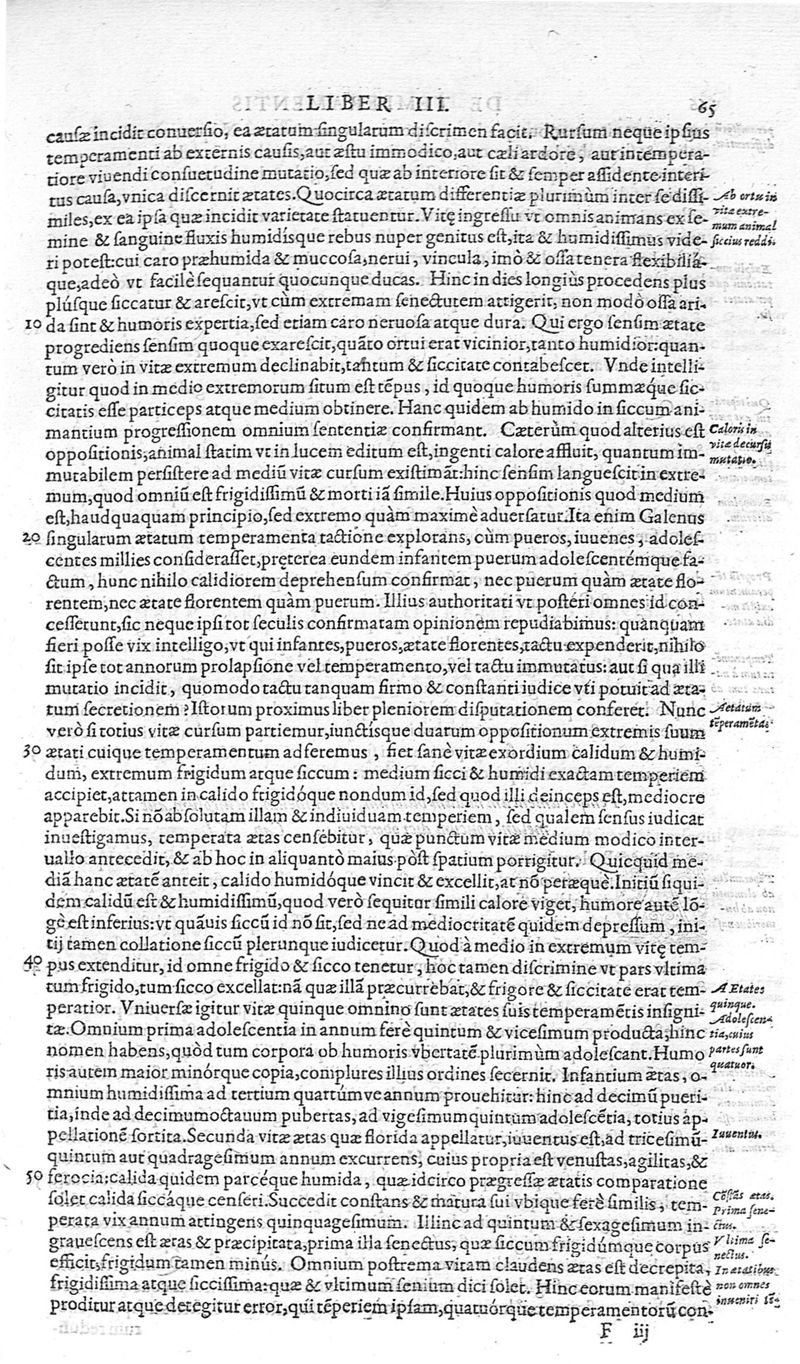 LIBER III. 65
causæ incidit conuersio, ea ætatum singularum discrimen facit. Rursum neque ipsius
temperamenti ab externis causis, aut æstu immodico, aut cæli ardore, aut intempera-
tiore viuendi consuetudine mutatio, sed quæ ab interiore sit & semper assidente interi-
tus causa, vnica discernit ætates. Quocirca ætatum differentiæ plurimùm inter se dissi-
miles, ex ea ipsa quæ incidit varietate statuentur. Vitę ingressu vt omnis animans ex se-
mine & sanguine fluxis humidísque rebus nuper genitus est, ita & humidissimus vide-
ri potest: cui caro præhumida & muccosa, nerui, vincula, imò & ossa tenera flexibiliá-
que, adeò vt facilè sequantur quocunque ducas. Hinc in dies longiùs procedens plus
plúsque siccatur & arescit, vt cùm extremam senectutem attigerit, non modò ossa ari-
10 da sint & humoris expertia, sed etiam caro neruosa atque dura. Qui ergo sensim ætate
progrediens sensim quoque exarescit, quãto ortui erat vicinior, tanto humidior: quan-
tum verò in vitæ extremum declinabit, tantum & siccitate contabescet. Vnde intelli-
gitur quod in medio extremorum situm est tẽpus, id quoque humoris summæque sic-
citatis esse particeps atque medium obtinere. Hanc quidem ab humido in siccum ani-
mantium progressionem omnium sententiæ confirmant. Cæterùm quod alterius est
oppositionis, animal statim vt in lucem editum est, ingenti calore affluit, quantum im-
mutabilem persistere ad mediũ vitæ cursum existimãt: hinc sensim languescit in extre-
mum, quod omniũ est frigidissimũ & morti iã simile. Huius oppositionis quod medium
est, haudquaquam principio, sed extremo quàm maximè aduersatur. Ita enim Galenus
20 singularum ætatum temperamenta tactione explorans, cùm pueros, iuuenes, adoles-
centes millies considerasset, pręterea eundem infantem puerum adolescentémque fa-
ctum, hunc nihilo calidiorem deprehensum confirmat, nec puerum quàm ætate flo-
rentem, nec ætate florentem quàm puerum. Illius authoritati vt postéri omnes id con-
cesserunt, sic neque ipsi tot seculis confirmatam opinionem repudiabimus: quanquam
fieri posse vix intelligo, vt qui infantes, pueros, ætate florentes, tactu expenderit, nihilo
sit ipse tot annorum prolapsione vel temperamento, vel tactu immutatus: aut si qua illi
mutatio incidit, quomodo tactu tanquam firmo & constanti iudice vti potuit ad æta-
tum secretionem? Istorum proximus liber pleniorem disputationem conferet. Nunc
verò si totius vitæ cursum partiemur, iunctisque duarum oppositionum extremis suum
30 ætati cuique temperamentum adferemus, fiet sanè vitæ exordium calidum & humi-
dum, extremum frigidum atque siccum: medium sicci & humidi exactam temperiem
accipiet, attamen in calido frigidóque nondum id, sed quod illi deinceps est, mediocre
apparebit. Si nõ absolutam illam & indiuiduam temperiem, sed qualem sensus iudicat
inuestigamus, temperata ætas censebitur, quæ punctum vitæ medium modico inter-
uallo antecedit, & ab hoc in aliquantò maius pòst spatium porrigitur. Quicquid me-
diã hanc ætatẽ anteit, calido humidóque vincit & excellit, at nõ peræque. Initiũ siqui-
dem calidũ est & humidissimũ, quod verò sequitur simili calore viget, humore autẽ lõ-
gè est inferius: vt quãuis siccũ id nõ sit, sed ne ad mediocritatẽ quidem depressum, ini-
tij tamen collatione siccũ plerunque iudicetur. Quod à medio in extremum vitę tem-
40 pus extenditur, id omne frigido & sicco tenetur, hoc tamen discrimine vt pars vltima
tum frigido, tum sicco excellat: nã quæ illã præcurrebat, & frigore & siccitate erat tem-
peratior. Vniuersæ igitur vitæ quinque omnino sunt ætates suis temperamẽtis insigni-
tæ. Omnium prima adolescentia in annum ferè quintum & vicesimum producta, hinc
nomen habens, quòd tum corpora ob humoris vbertatẽ plurimùm adolescant. Humo
ris autem maior minórque copia, complures illius ordines secernit. Infantium ætas, o-
mnium humidissima ad tertium quartúmve annum prouehitur: hinc ad decimũ pueri-
tia, inde ad decimumoctauum pubertas, ad vigesimumquintum adolescẽtia, totius ap-
pellationẽ sortita. Secunda vitæ ætas quæ florida appellatur, iuuentus est, ad tricesimũ-
quintum aut quadragesimum annum excurrens, cuius propria est venustas, agilitas, &
50 ferocia: calida quidem parcéque humida, quæ idcirco prægressæ ætatis comparatione
solet calida siccáque censeri. Succedit constans & matura sui vbique ferè similis, tem-
perata vix annum attingens quinquagesimum. Illinc ad quintum & sexagesimum in-
grauescens est ætas & præcipitata, prima illa senectus, quæ siccum frigidúmque corpus
efficit, frigidum tamen minùs. Omnium postrema vitam claudens ætas est decrepita,
frigidissima atque siccissima: quæ & vltimum senium dici solet. Hinc eorum manifestè
proditur atque detegitur error, qui tẽperiem ipsam, quatuórque temperamentorũ con-
F iij
Ab ortu in
vitæ extre-
mum animal
siccius reddi.
Caloris in
vitæ decursu
mutatio.
Aetatum
tẽperamẽta.
AEtates
quinque.
Adolescen
tia, cuius
partes sunt
quatuor.
Iuuentus.
Cõstãs ætas.
Prima sene-
ctus.
Vltima se-
nectus.
In ætatibus
non omnes
inueniri tẽ-